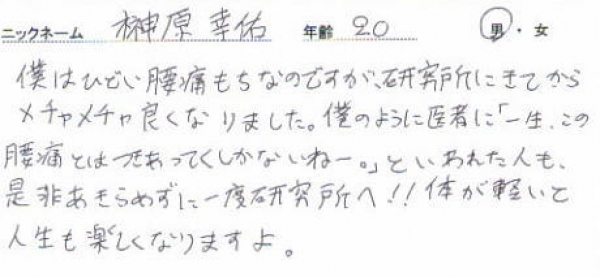 ニックネーム 榊原 幸佑 年齢 20 男・女
僕はひどい腰痛もちなのですが、研究所にきてから
メチャメチャ良くなりました。僕のように医者に「一生、この
腰痛とはつきあってくしかないねー。」といわれた人も、
是非あきらめずに一度研究所へ!!体が軽いと
人生も楽しくなりますよ。